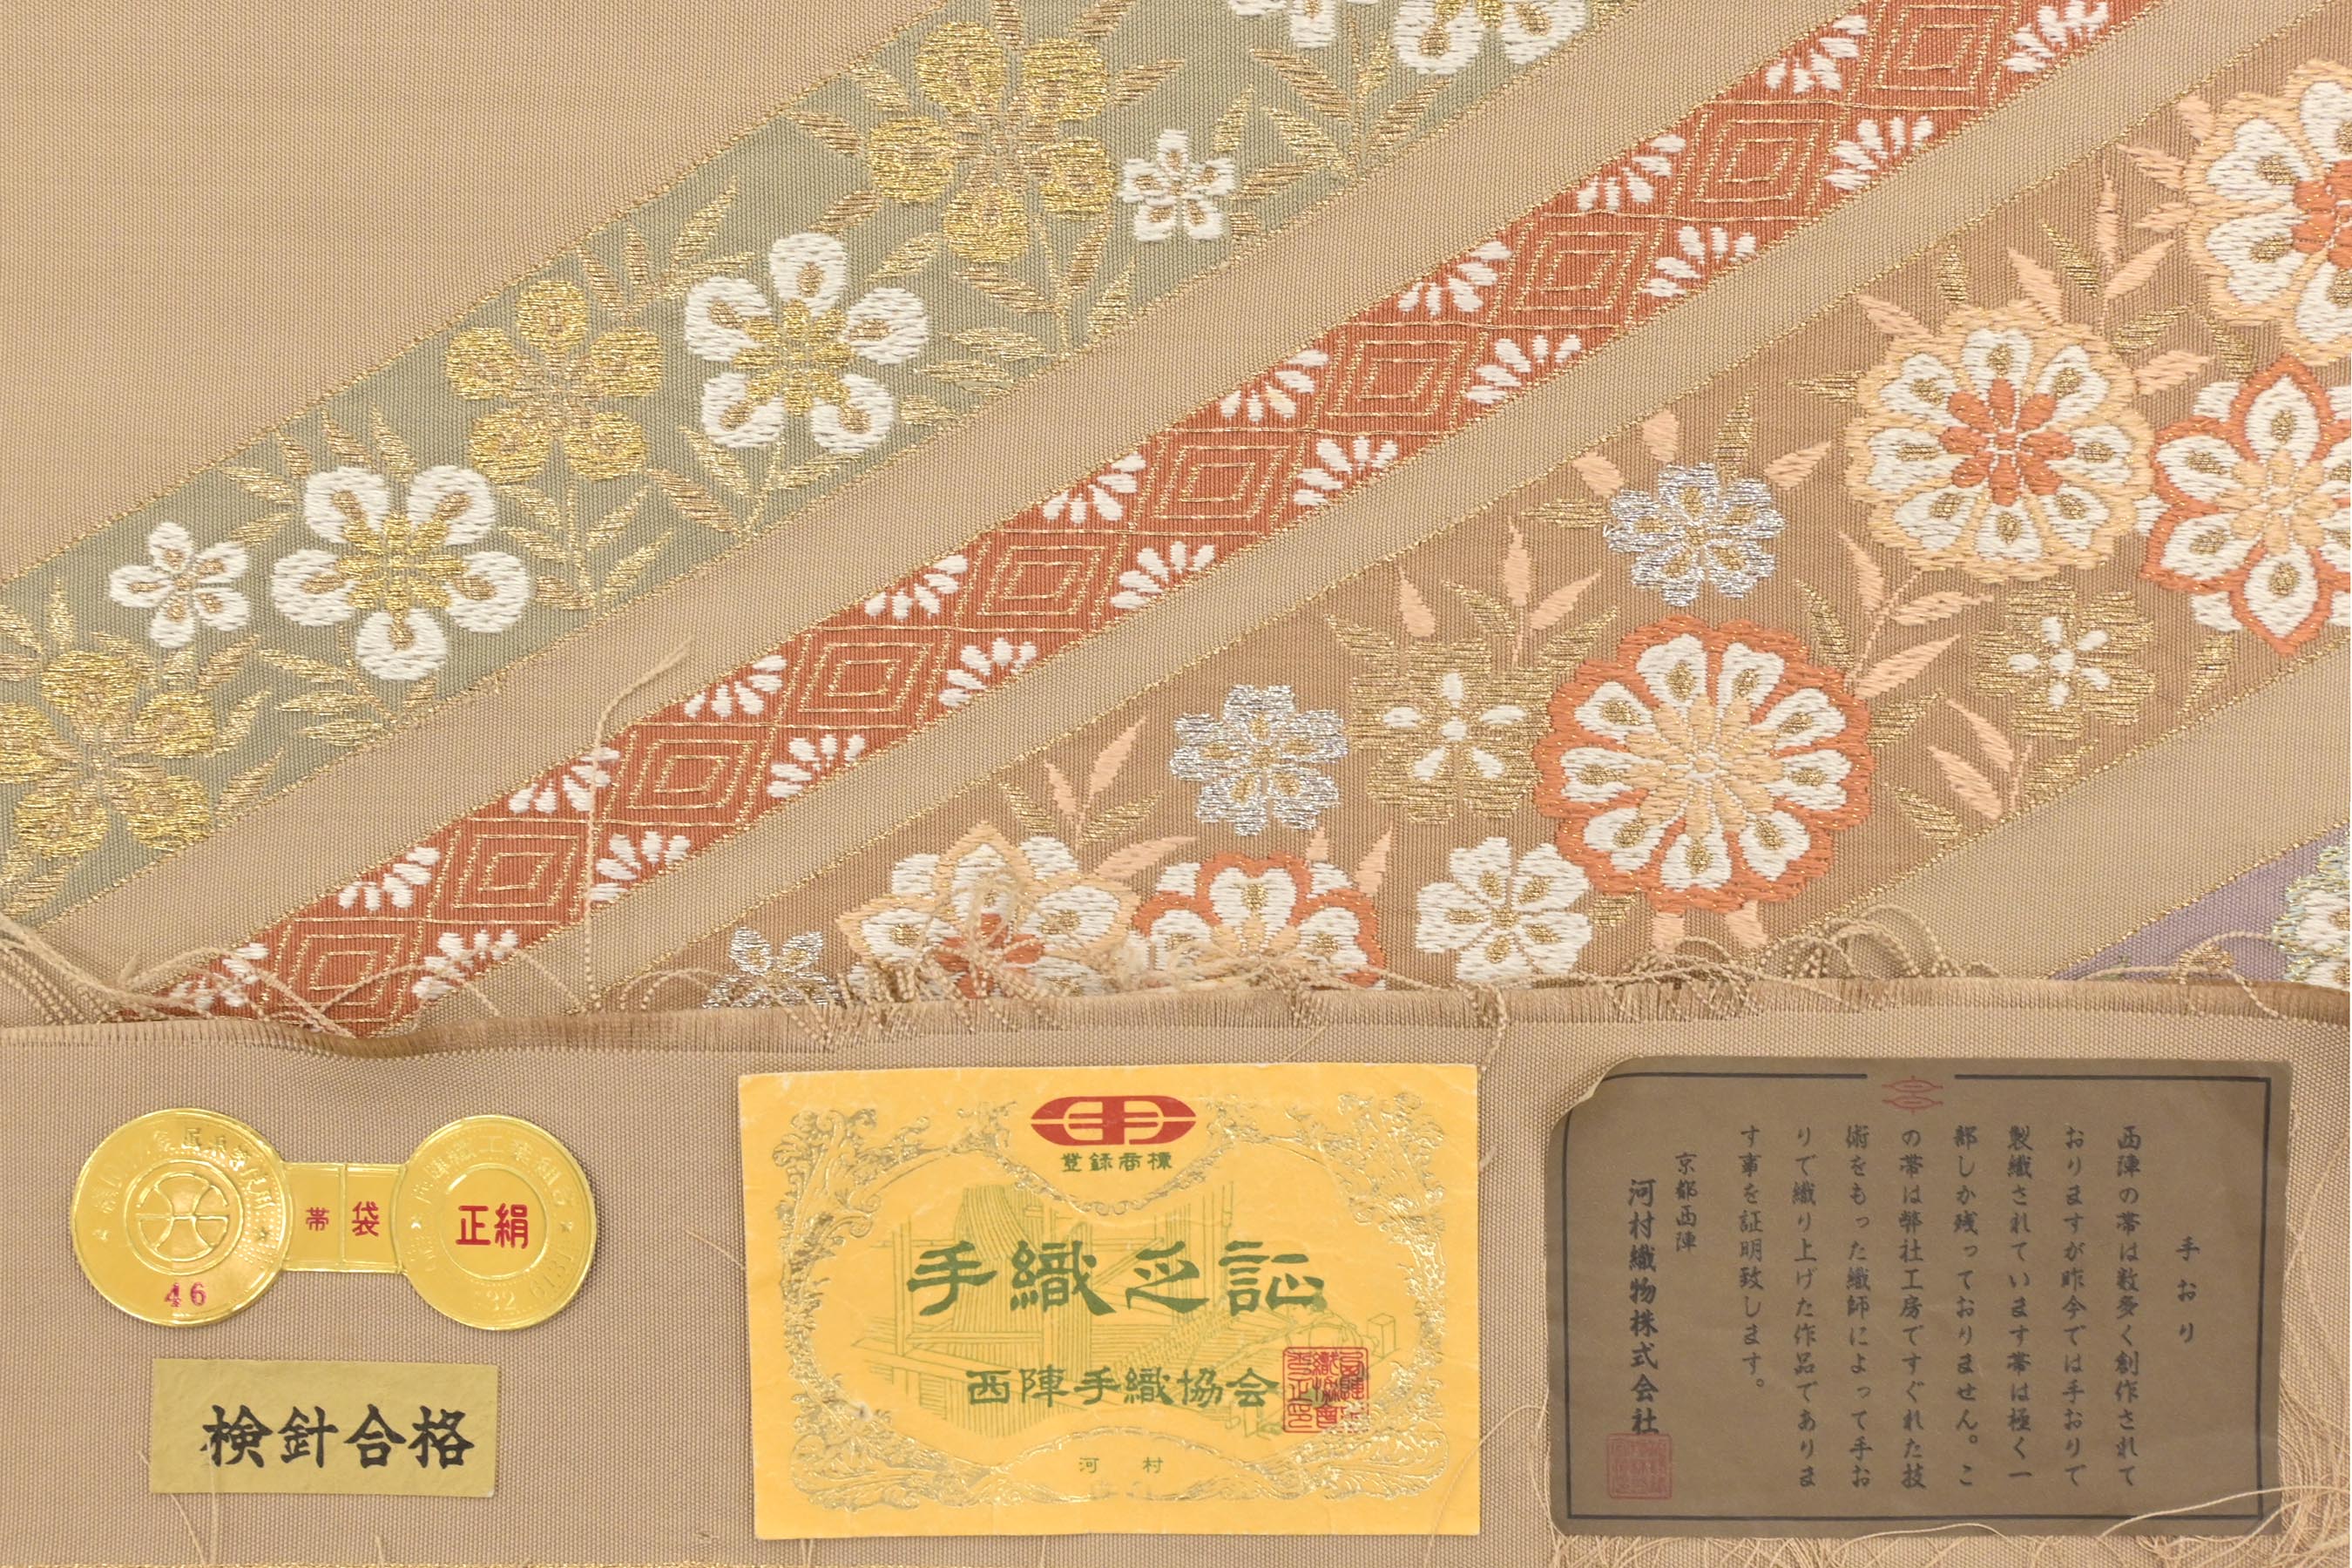 帯
袋
正絹
46
検針合格
登録商標
手織之証
西陣手織協会
河村
手おり
西陣の帯は数多く創作されて
おりますが昨今では手おりで
製織されています帯は極く一
部しか残っておりません。こ
の帯は弊社工房ですぐれた技
術をもった織師によって手お
りで織り上げた作品でありま
す事を証明致します。
京都西陣
河村織物株式会社